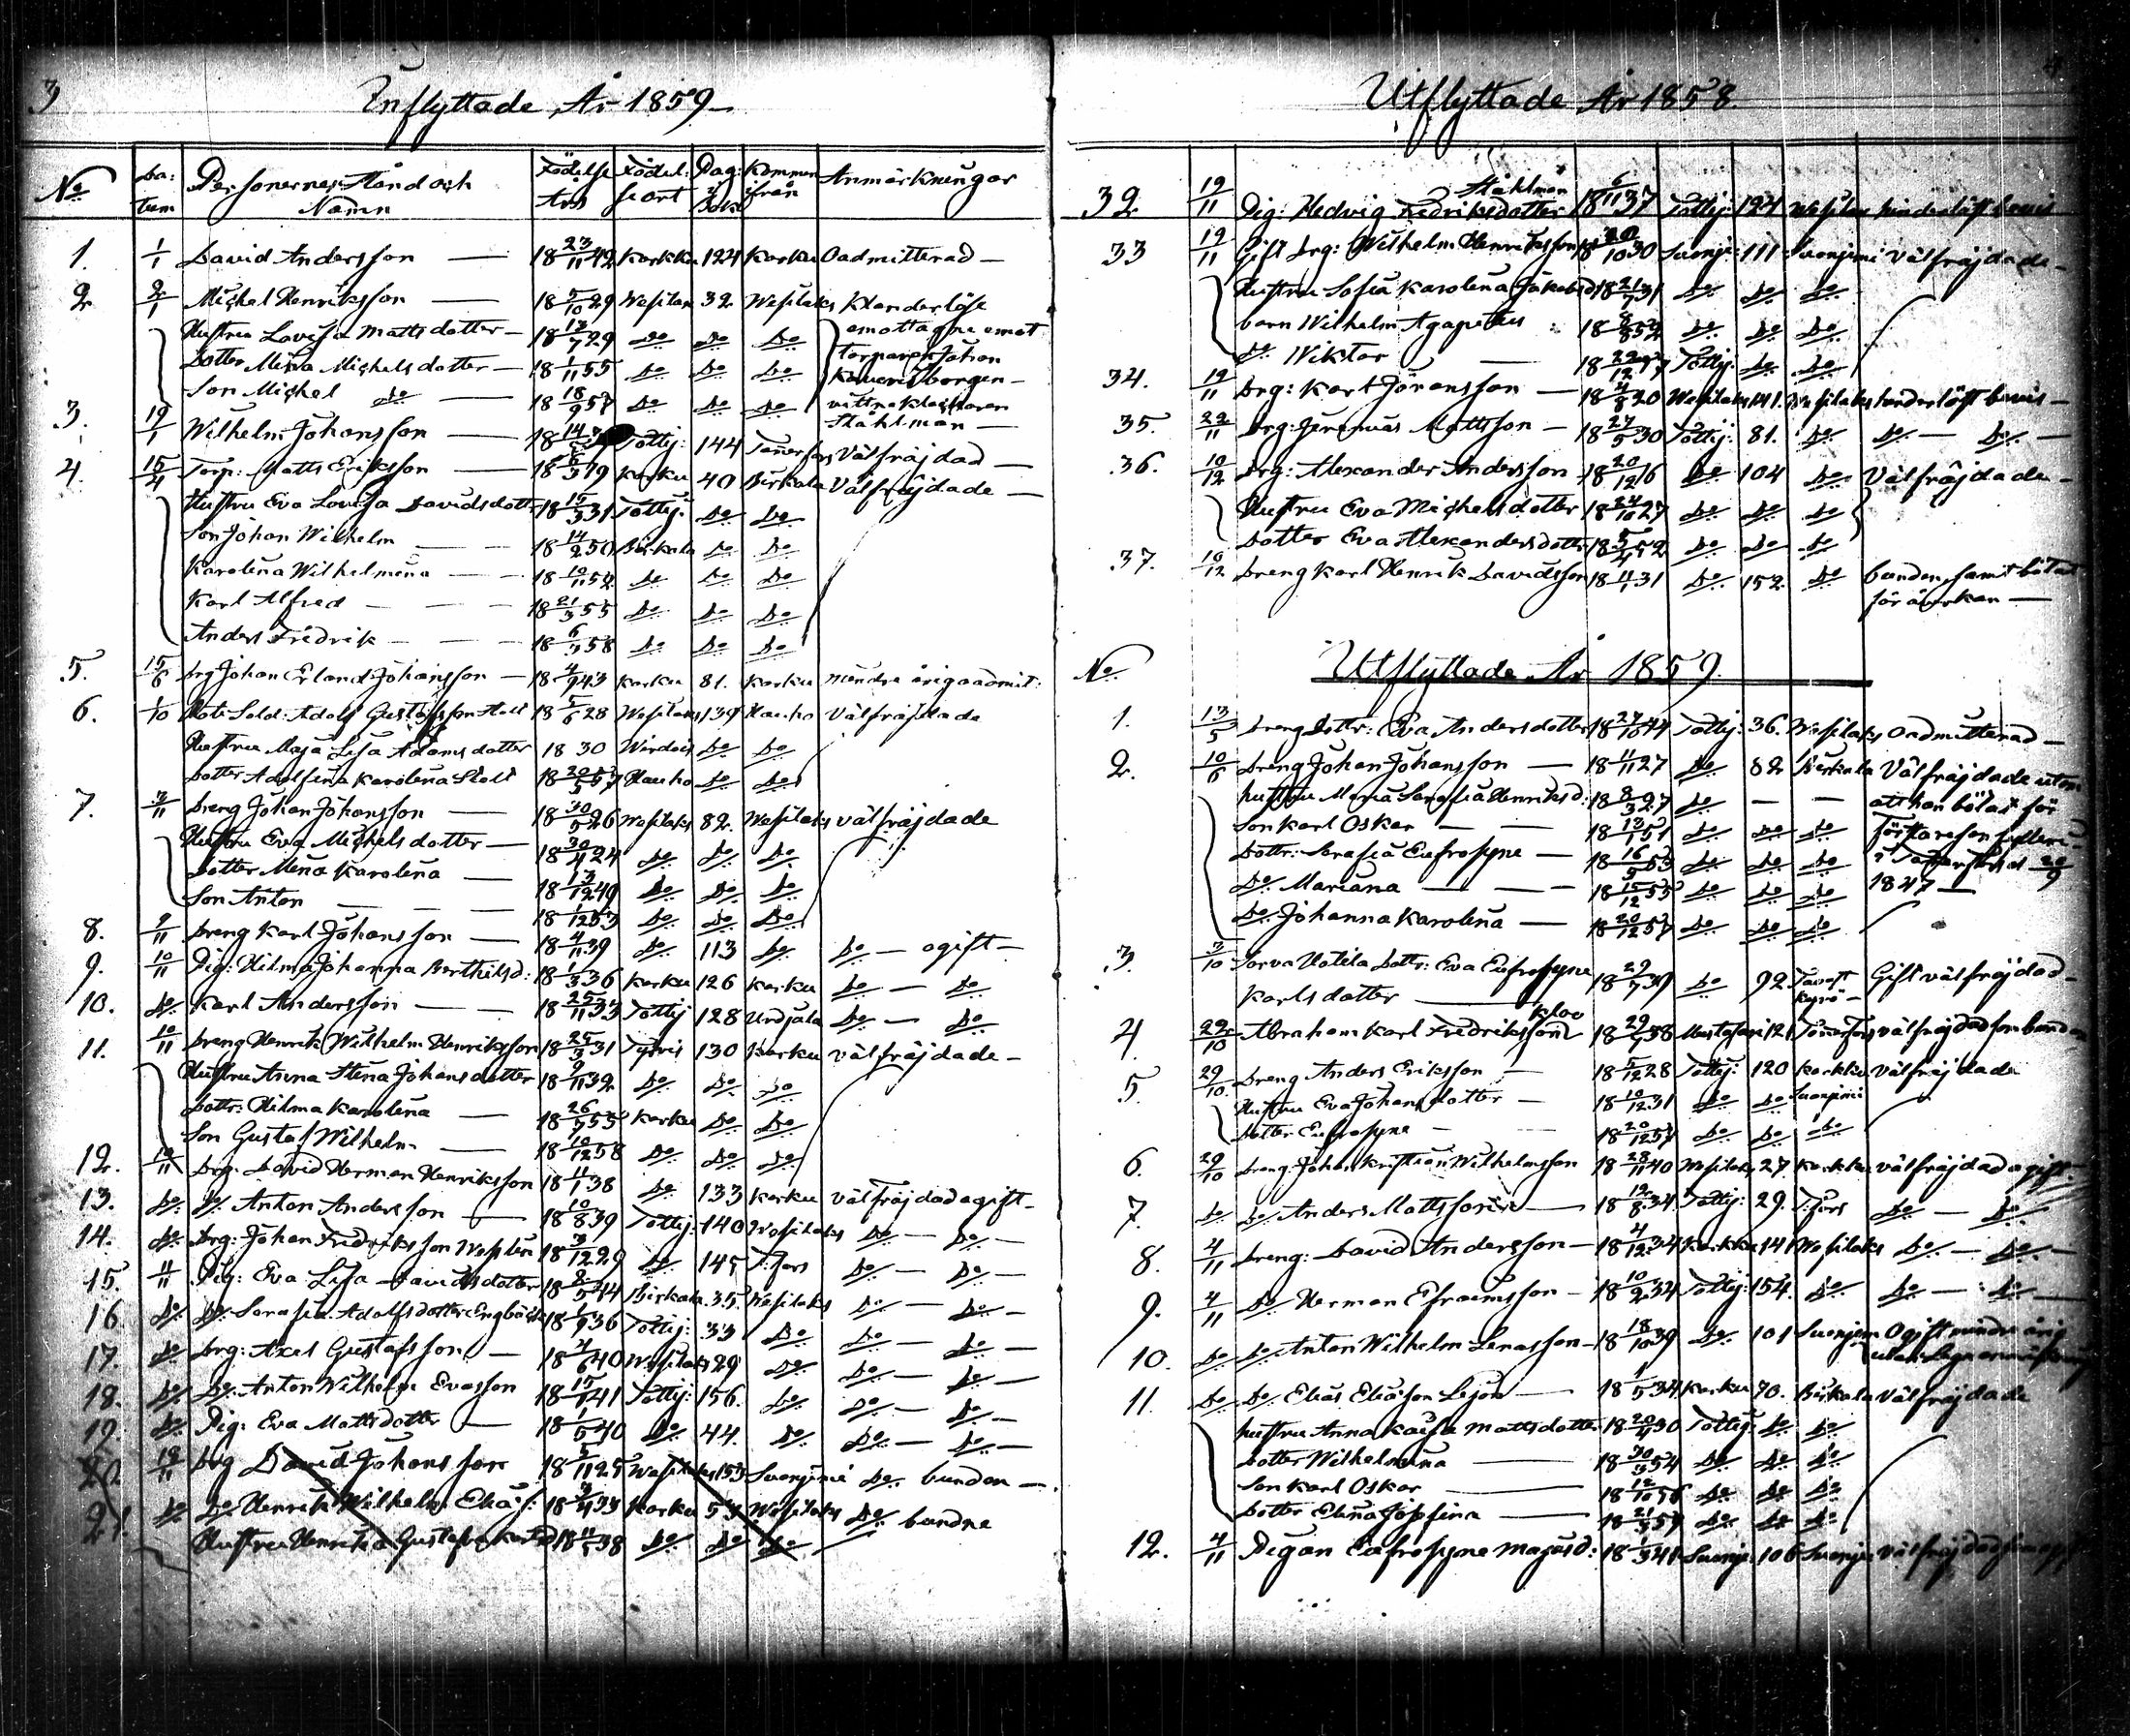 3
Inflyttade År 1859
No Datum Personernes Stånd och Namn Födelse År Födelseort Pag: i Bok Kommen ifrån Anmärkningar
1. 1/1 David Andersson — 18 23/11 42 Karkku 124 Karku Oadmitterad —
2 2/1 Michel Henriksson — 18 5/10 29 Wesilax 32 Wesilaks Klanderlöse
Hustru Lovisa Mattsdotter — 18 13/7 29 Do Do Do emottagne emot
Dotter Mina Michelsdotter — 18 1/11 55 Do Do Do Torparen Johan
Son Michel Do — 18 18/9 57 Do Do Do
vittne Klockaren
Stahlman —
3. 19/1 Wilhelm Johansson — Tottij: 144 Välfräjdad —
4. 15/4 Torp: Matts Eriksson — Karku 40 Birkala Välfräjdade —
Hustru Eva Lovisa Davidsdott: 18 15/3 31 Tottij: Do Do
Son Johan Wilhelm — 18 14/2 50 Birkala Do Do
Karolina Wilhelmina — 18 10/11 52 Do Do Do
Karl Alfred — 18 21/3 55 Do Do Do
Anders Fredrik — 18 6/3 58 Do Do Do
5. 15/6 Drg Johan Erland Johansson — 18 4/9 43 Karku 81. Karku mindre årig oadmit:
6. 1/10 Adolf Gustafsson 18 5/6 28 Wesilaks 139 Hauho Välfräjdade
Hustru Maja Lisa Adamsdotter 18 30 Wirdois Do Do
Dotter Adolfina Karolina 18 20/5 57 Hauho Do Do
7. 3/11 Dreng Johan Johansson — 18 30/5 26 Wesilaks 82. Wesilaks välfräjdade
Hustru Eva Michelsdotter — 18 30/4 24 Do Do Do
Dotter Mina Karolina — 18 13/12 49 Do Do Do
Son Anton — 18 1/12 53 Do Do Do
8. 9/11 Dreng Karl Johansson — 18 4/11 39 Do 113 Do Do — ogift —
9. 10/11 Pig: Hilma Johanna Berthilsd: 18 1/3 36 Karku 126 Karku Do — Do
10. Do Karl Andersson — 18 25/11 33 Tottij 128 Urdjala Do — Do
11. 10/11 Dreng Henrik Wilhelm Henriksson 18 25/3 31 Tyrvis 130 Karku välfräjdade —
Hustru Anna Stina Johansdotter 18 9/11 32 Do Do Do
Dottr: Hilma Karolina — 18 26/7 55 Karku Do Do
Son Gustaf Wilhelm — 18 10/12 58 Do Do Do
12. 10/11 Drg. David Herman Henriksson 18 11/1 38 Do 133 Karku välfräjdad ogift —
13. Do Do Anton Andersson — 18 10/8 39 Tottij: 140 Wesilaks Do — Do —
14. Do Drg: Johan Fredriksson 18 3/12 29 Do 145 T:fors Do — Do —
15. 11/11 Pig: Eva Lisa Davidsdotter 18 2/5 44 Birkala 35. Wesilaks Do — Do —
16 Do Do Serafia Adolfsdotter 18 1/9 36 Tottij: 33 Do Do — Do —
17. Do Drg: Axel Gustafsson — 18 4/6 40 Wesilaks 29 Do Do — Do —
18. Do Do Anton Wilhelm Evasson 18 15/1 41 Tottij: 156. Do Do — Do —
19. Do Pig: Eva Mattsdotter — 18 1/5 40 Do 44. Do Do — Do —
20 12/11 Drg David Johansson 18 5/11 25 Wesilaks 153 Suonjemi Do bunden —
21. Do Do Henrik Wilhelm Eliass: 18 3/4 33 Karku 53 Wesilaks Do bundne
Hustru Henrika Gustafva 18 11/5 38 Do Do Do
4
Utflyttade År 1858.
32 19/11 Pig: Hedvig Fredriksdotter Ståhlman 18 6/11 37 Tottij: 124 Wesilax hinderlöst bevis
33 19/11 Gift Drg: Wilhelm Henriksson 18 20/10 30 Suonje: 111 Suonjemi välfräjdade —
Hustru Sofia Karolina Jakobsd: 18 21/7 31 Do Do Do
barn Wilhelm Agapetus 18 6/8 52 Do Do Do
Do Wiktor — Tottij: Do Do
34. 19/11 Drg: Karl Göransson — 18 4/8 20 Wesilaks 141. Wesilaks hinderlöst bevis —
35. 22/11 Drg: Jeremias Mattsson — 18 27/5 30 Tottij: 81. Do Do — Do —
36. 10/12 Drg: Alexander Andersson 18 20/12 16 Do 104 Do Välfräjdade —
Hustru Eva Michelsdotter 18 24/10 27 Do Do Do
Dotter Eva Alexandersdotter 18 Do Do Do
37. 16/12 Dreng Karl Henrik Davidsson 18 4/1 31 Do 152. Do bunden samt bötat
för åverkan —
No Utflyttade År 1859.
1. 13/5 Dreng Dottr: Eva Andersdotter 18 27/10 44 Tottij: 36. Wesilaks Oadmitterad —
2. 10/6 Dreng Johan Johansson — 18 11/11 27 Do 82 Birkala Välfräjdade utom
hustru Maria Serafia Henriksd: 18 8/3 27 Do — — att han bötat för
Son Karl Oskar — 18 13/1 51 Do Do Do
Dottr: Serafia Eufrosyne — 18 16/5 53 Do Do Do
Do Mariana — 18 15/12 55 Do Do Do 1847 —
Do Johanna Karolina — 18 20/12 57 Do Do Do
3. 3/10 Sorva Uotila Dottr: Eva Eufrosyne 18 29/7 39 Do 92 Tavastkyrö — Gift välfräjdad —
Karlsdotter —
4 29/10 Abraham Karl Fredriksson 18 29/7 38 121 välfräjdad som bunden
5 29/10. Dreng Anders Eriksson — 18 5/12 28 Tottij: 120 Karkku välfräjdade
Hustru Eva Johansdotter — 18 10/12 31 Do Do Suonjemi
Dotter Eufrosyne — 18 20/12 57 Do Do Do
6. 29/10 Dreng Johan Kristian Wilhelmsson 18 28/11 40 Wesilaks 27. Karkku välfräjdad ogift
7. Do Do Anders Mattsson — 18 12/8 34. Tottij: 29. T:fors Do — Do
8. 4/11 Dreng: David Andersson — 18 4/12 34 Karkku 141 Wesilaks Do — Do —
9. 4/11 Do Herman Efraimsson — 18 10/2 34 Tottij: 154. Do Do — Do —
10. Do Do Anton Wilhelm Lenasson — 18 18/10 39 Do 101 Suonjem Ogift mindre årig
11. Do Do Elias Eliasson — 18 1/5 34 Karku 70. Birkala välfräjdade
hustru Anna Kaisa Mattsdotter 18 20/4 30 Tottij: Do Do
Dotter Wilhelmina — 18 30/3 54 Do Do Do
Son Karl Oskar — 18 12/10 56 Do Do Do
Dotter Elina Josefina — 18 21/3 59 Do Do Do
12. 4/11 Pigan Eufrosyne Majasd: 18 1/3 41 Suonje: 106 Suonje: välfräjdad